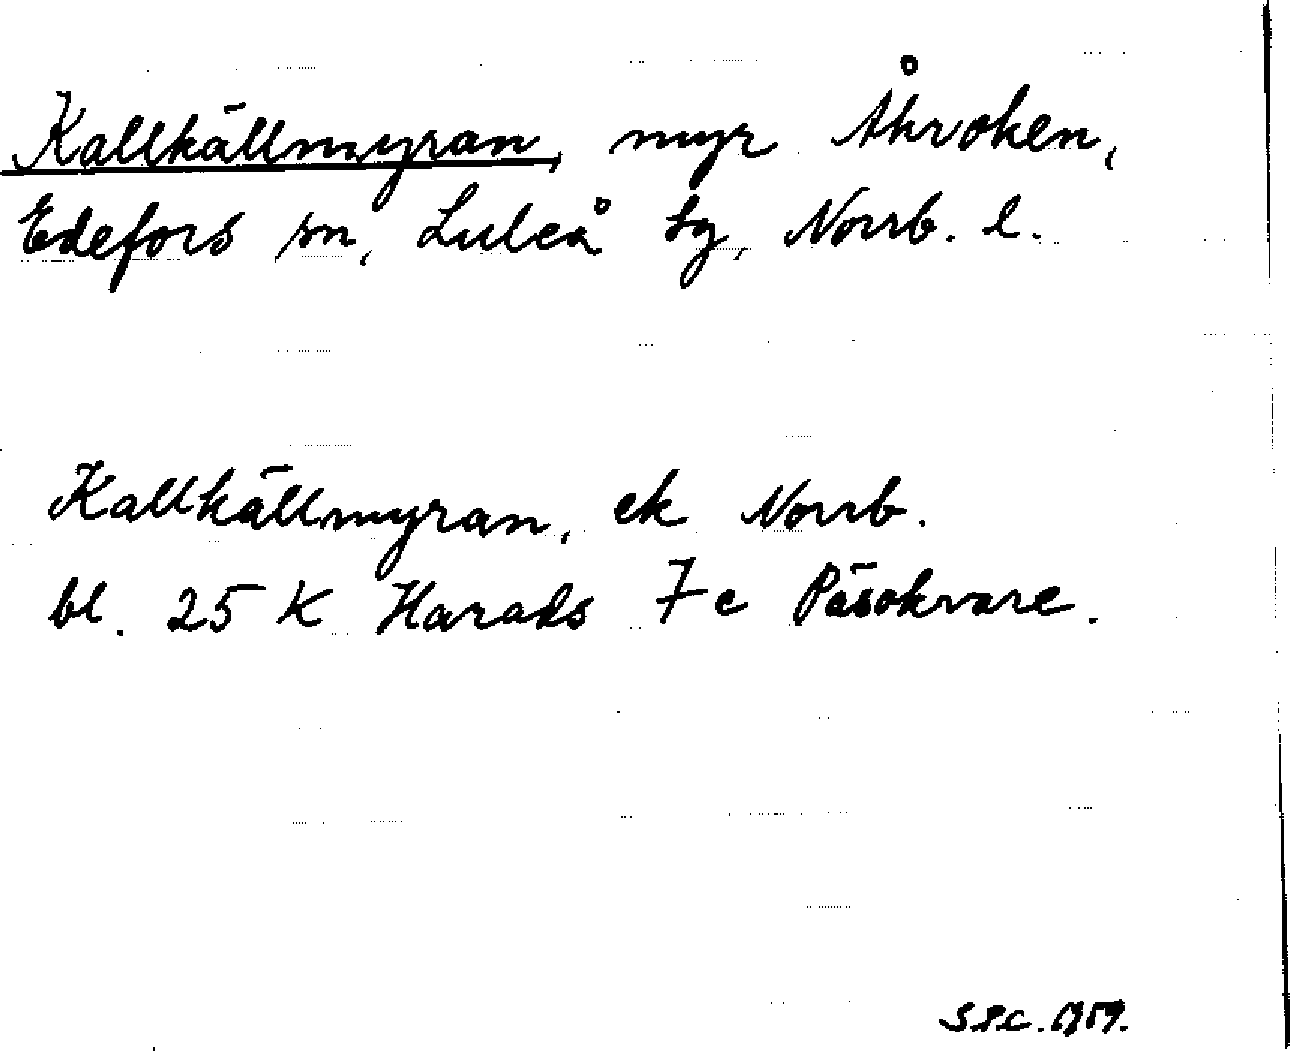 Kallkällmyran, myr Åkroken,
Edefors sn, Luleå tg, Norrb. l.
Kallkällmyran, ek Norrb.
bl. 25 K Harads 7 c Päsokvare.